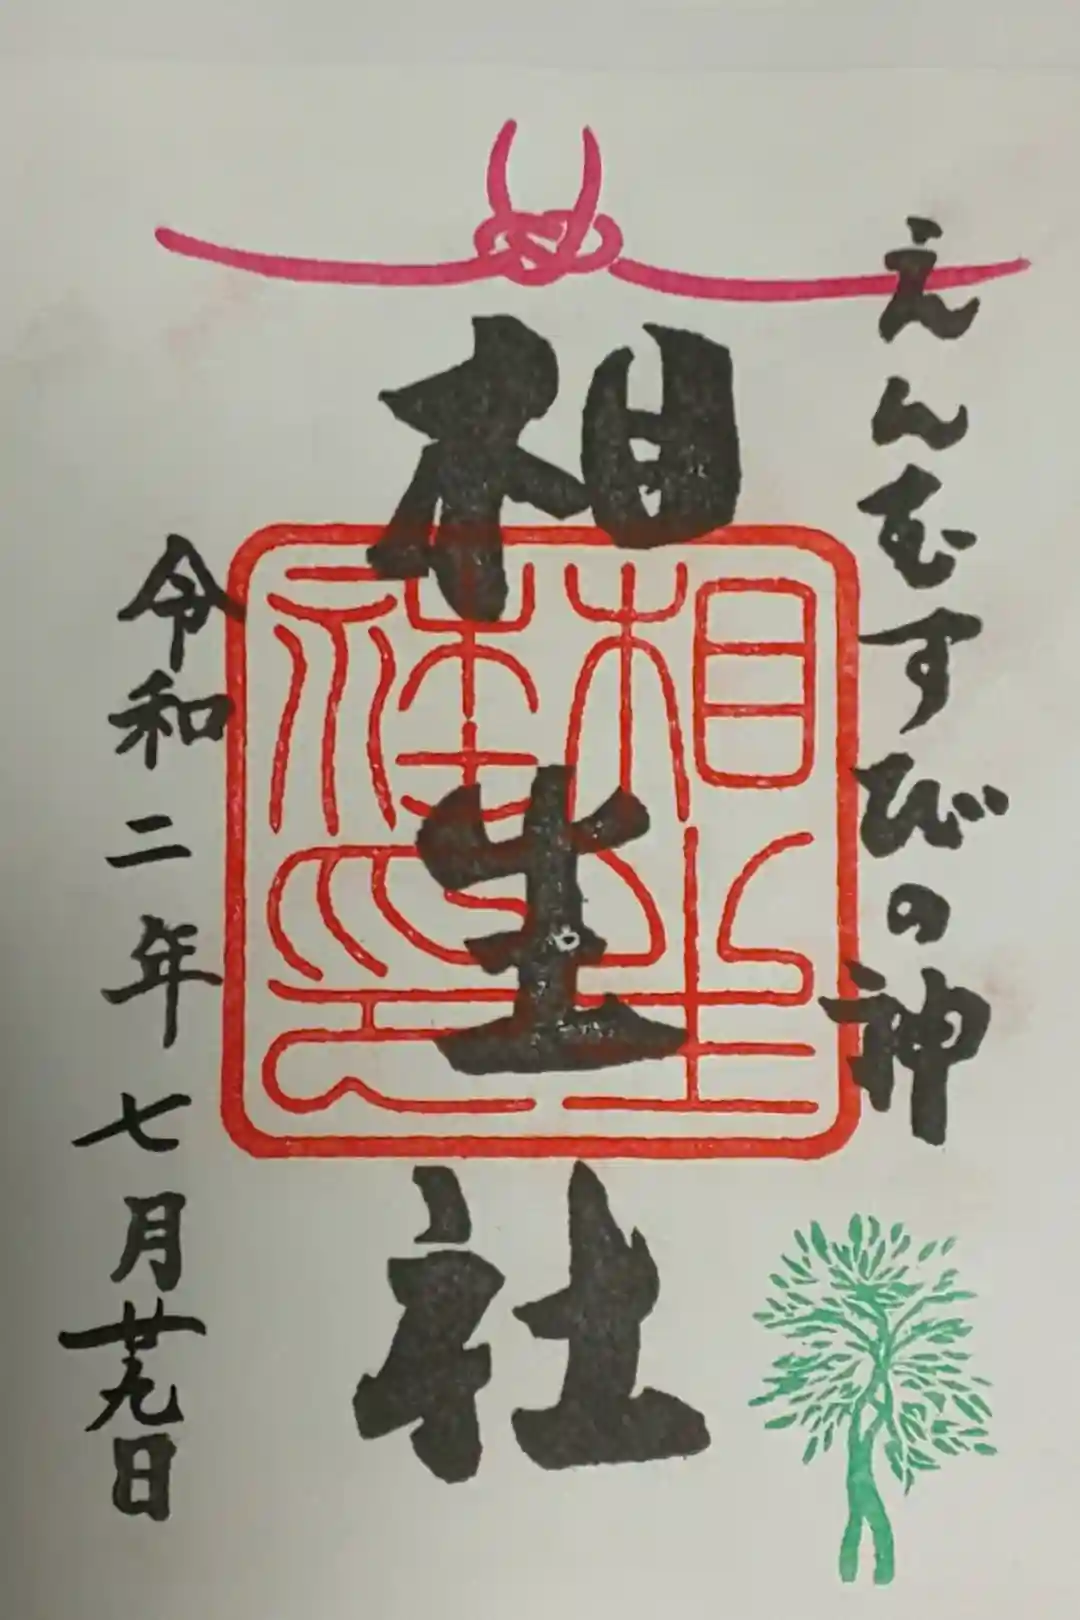 えんむすびの神
相生社
令和二年七月廿九日